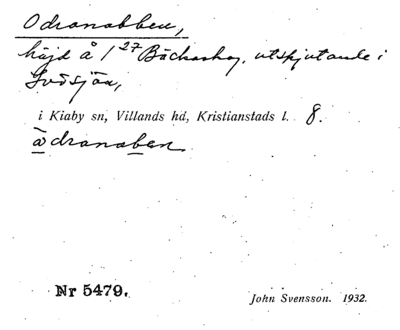 Odranabben,
höjd å 1 27 Bäckaskog, utskjutande i
Ivösjön,
i Kiaby sn, Villands hd, Kristianstads l. 8.
àdranaben
Nr 5479.
John Svensson. 1932.